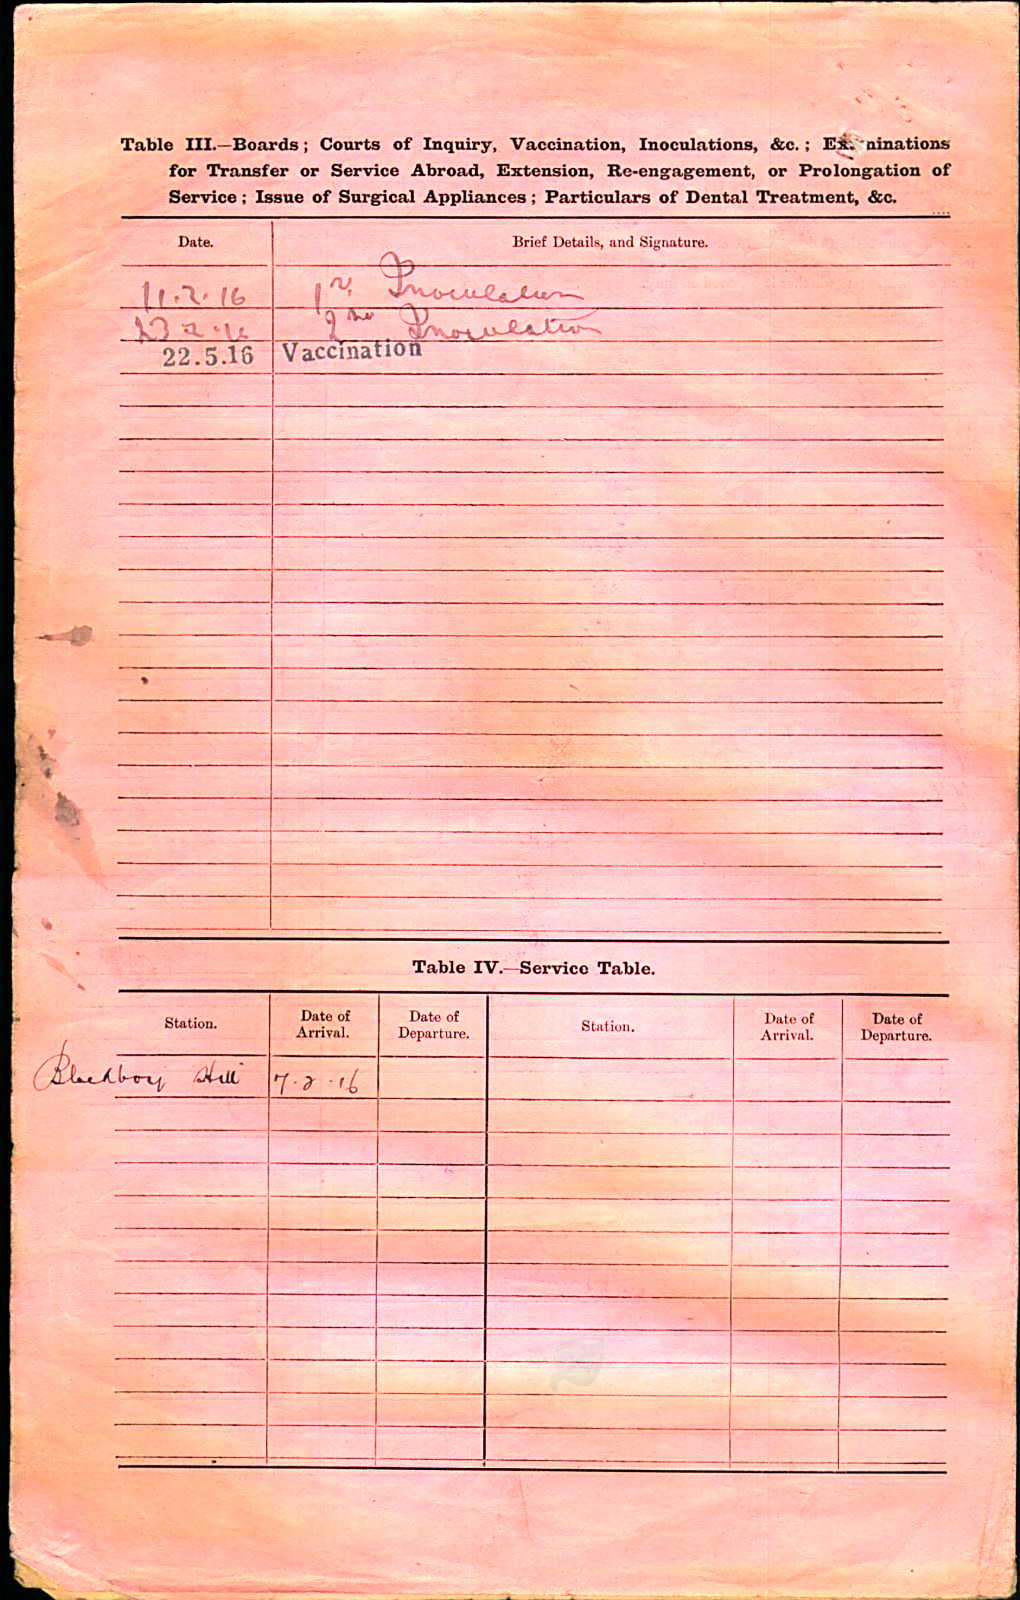 Table III.—Boards; Courts of Inquiry, Vaccination, Inoculations, &c.; Examinations
for Transfer or Service Abroad, Extension, Re-engagement, or Prolongation of
Service; Issue of Surgical Appliances; Particulars of Dental Treatment, &c.
Date. Brief Details, and Signature.
11.2.16 1st Inoculation
23.2.16 2nd Inoculation
22.5.16 Vaccination
Table IV.—Service Table.
Station. Date of Arrival. Date of Departure. Station. Date of Arrival. Date of Departure.
Blackboy Hill 7.2.16